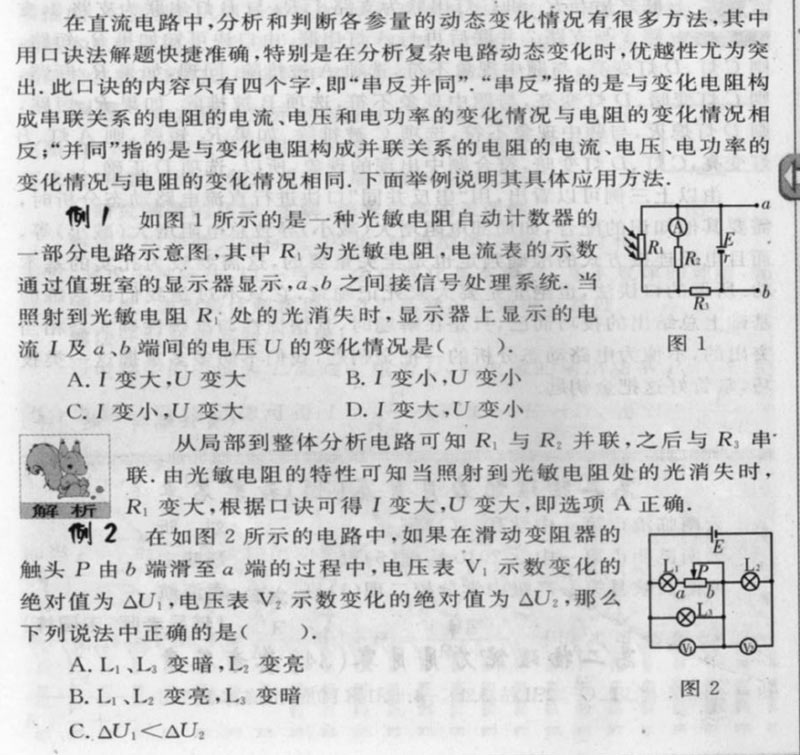 在直流电路中,分析和判断各参量的动态变化情况有很多方法,其中
用口诀法解题快捷准确,特别是在分析复杂电路动态变化时,优越性尤为突
出.此口诀的内容只有四个字,即“串反并同”.“串反”指的是与变化电阻构
成串联关系的电阻的电流、电压和电功率的变化情况与电阻的变化情况相
反;“并同”指的是与变化电阻构成并联关系的电阻的电流、电压、电功率的
变化情况与电阻的变化情况相同.下面举例说明其具体应用方法.
例1 如图1所示的是一种光敏电阻自动计数器的
一部分电路示意图,其中R₁为光敏电阻,电流表的示数
通过值班室的显示器显示,a、b之间接信号处理系统.当
照射到光敏电阻R₁处的光消失时,显示器上显示的电
流I及a、b端间的电压U的变化情况是( ).
A.I变大,U变大 B.I变小,U变小
C.I变小,U变大 D.I变大,U变小
a
A
E
R₁
R₂
r
b
R₃
图1
从局部到整体分析电路可知R₁与R₂并联,之后与R₃串
联.由光敏电阻的特性可知当照射到光敏电阻处的光消失时,
解析 R₁变大,根据口诀可得I变大,U变大,即选项A正确.
例2 在如图2所示的电路中,如果在滑动变阻器的
触头P由b端滑至a端的过程中,电压表V₁示数变化的
绝对值为△U₁,电压表V₂示数变化的绝对值为△U₂,那么
下列说法中正确的是( ).
A.L₁、L₃变暗,L₂变亮
B.L₁、L₂变亮,L₃变暗
C.△U₁<△U₂
E
L₁ P L₂
a b
L₃
V₁ V₂
图2